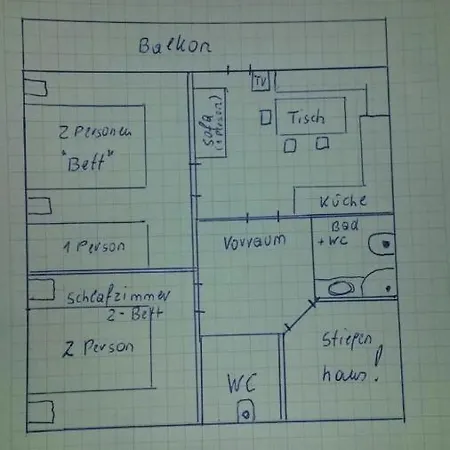 Balkon
2 Personen
"Bett"
Sofa
(1 Person)
TV
Tisch
Küche
1 Person
Vorraum
Bad
+ WC
Schlafzimmer
2-Bett
2 Person
WC
Stiegen
haus!